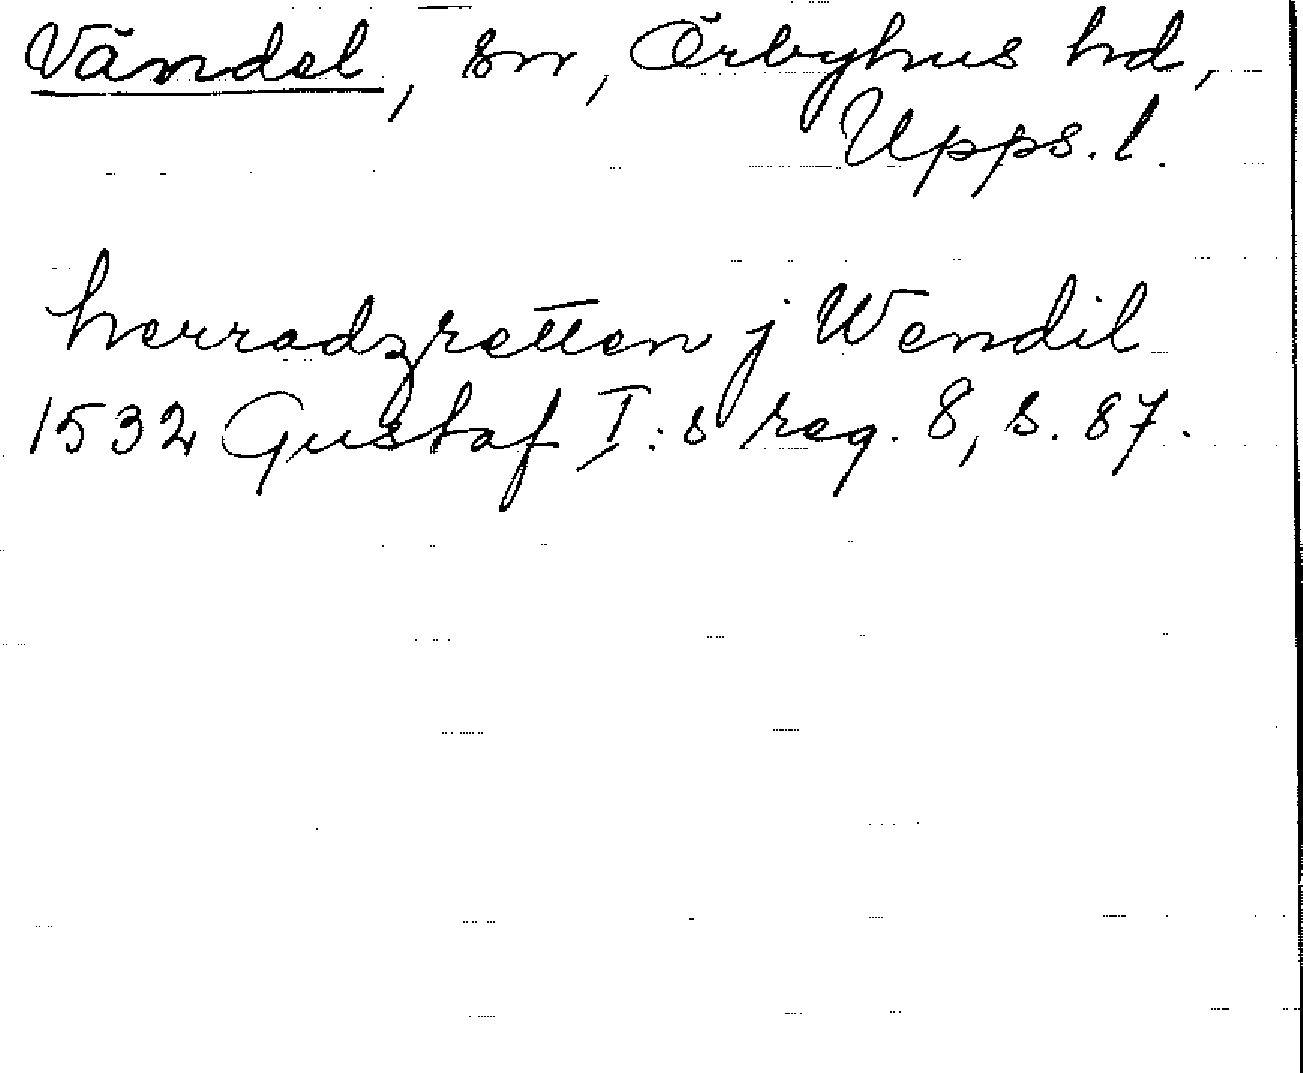 Vändel, sn, Örbyhus hd,
Upps. l.
herradzretten j Wendil
1532 Gustaf I:s reg. 8, s. 87.